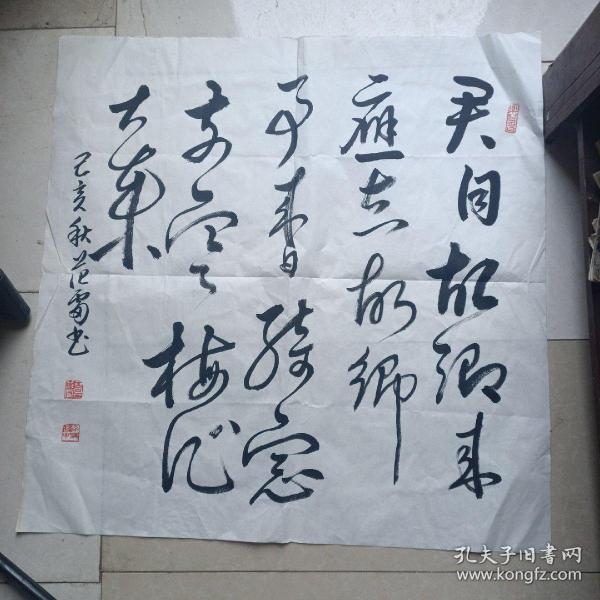 君自故鄉來
應知故鄉
事來日綺窗
前寒梅著
花未
己亥秋范雷书
孔夫子旧书网
www.kongfz.com